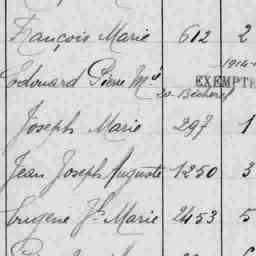 François Marie 612 2
Edouard Pierre Mie 1914
EXEMPTÉ
Joseph Marie 297 1
Jean Joseph Auguste 1250 3
Eugène Jh Marie 2453 5